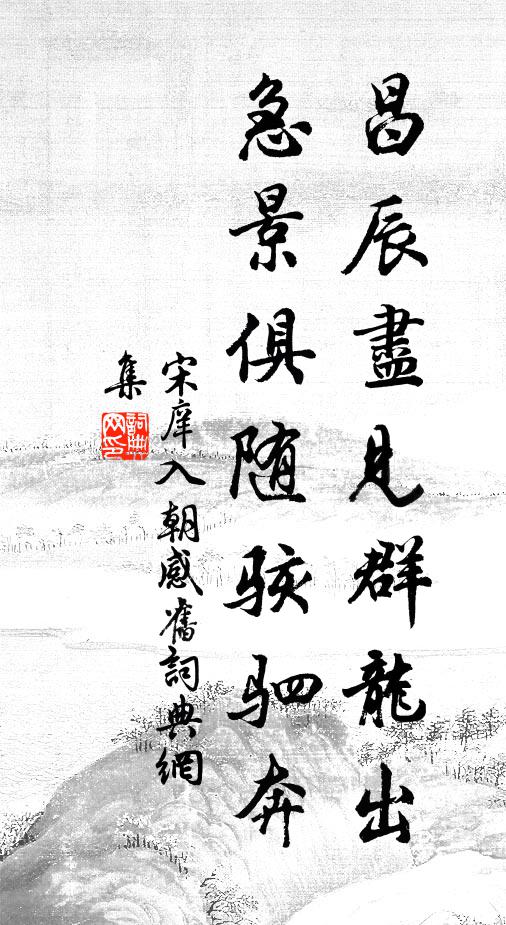 昌辰盡見群龍出
急景俱随駭駟奔
宋庠入朝感舊詞典網
集
詞典網印